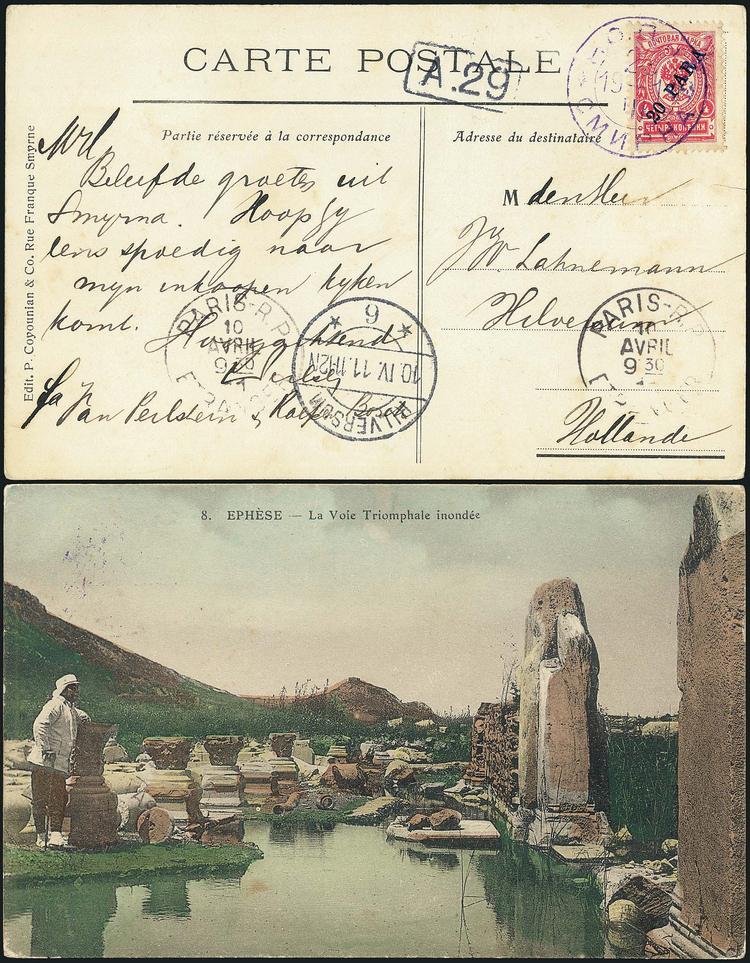 CARTE POSTALE
A.29
Partie réservée à la correspondance
Adresse du destinataire
Edit. P. Coyounian & Co. Rue Franque Smyrne
ПОЧТОВАЯ МАРКА
20 PARA
ЧЕТЫРЕ КОПѢЙКИ
Beleefde groeten uit
Smyrna. Hoop gy
eens spoedig naar
mijn inkoopen kyken
komt.
Hoogachtend
Jan Perlstein &
M den Heer
Lahnemann
Hilversum
Hollande
PARIS-R.P.
10
AVRIL
9 30
ETRANGER
9
10.IV.11.11-12N
HILVERSUM
PARIS-R.P.
10
AVRIL
9 30
8. EPHÈSE — La Voie Triomphale inondée